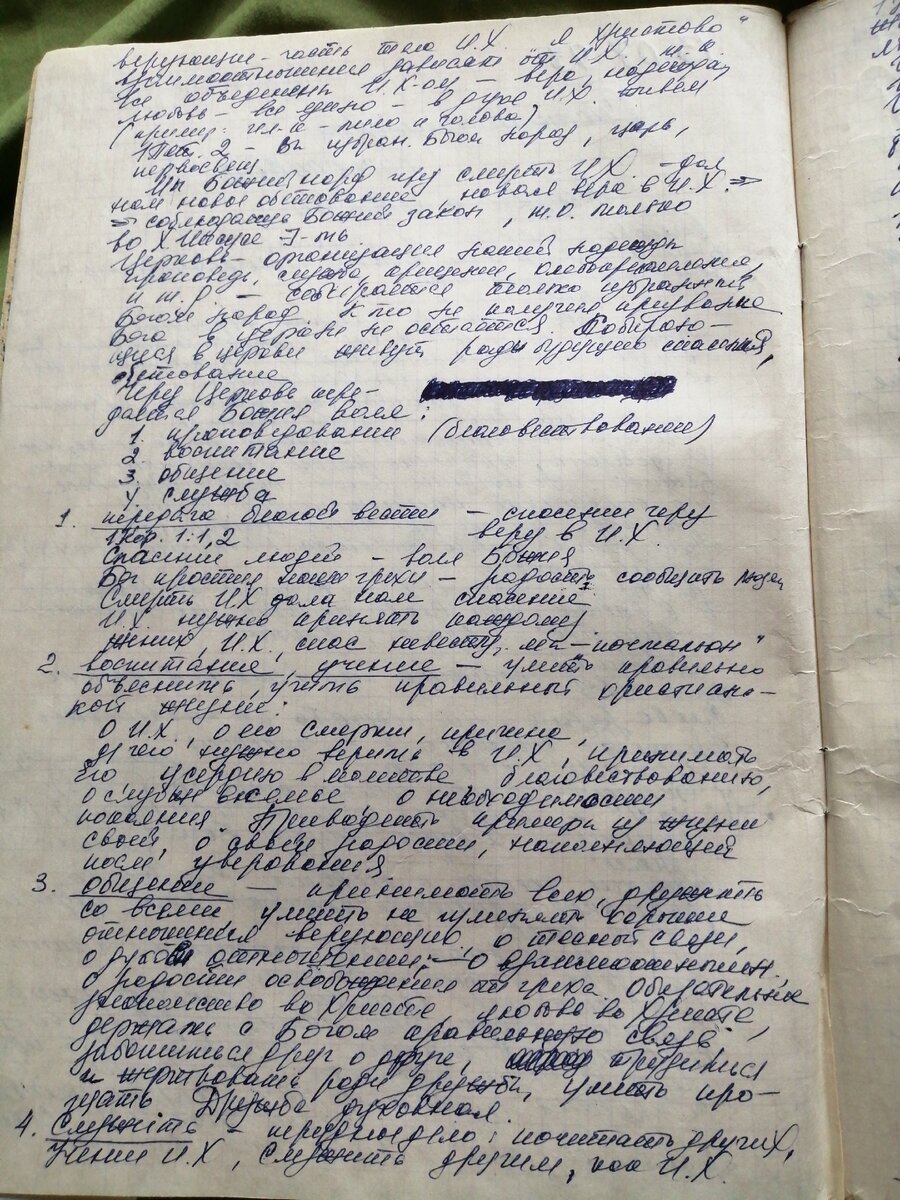 верующие - часть тела И.Х. я Христово"
взаимоотношения зависят от И.Х. т.к.
все объединены И.Х-ом - вера, надежда,
любовь - все едино - в духе И.Х. живем
(пример: - тело и голова)
1 Пет. 2 - Вы избран. Божий народ, царь,
первосвящ
Мы Божий народ чрез смерть И.Х. - дал
нам новое обетование, новая вера в И.Х. ⇒
⇒ соблюдающие Божий закон, т.о. только
во Х Иисусе
Церковь - организация нашей надежды
проповедь, служба, крещение,
и т.д. - собирается только избранный
Богом народ. Кто не получил призвание
Бога в церкви не останется. Собираю-
щиеся в церкви живут ради будущего спасения,
обетование
Через Церковь пере-
дается Божия воля:
1. проповедование (благовествование)
2. воспитание
3. общение
4. служба
1. передача благой вести - спасение через
1 Кор. 1:1,2 веру в И.Х.
Спасение людей - воля Божия
Бог простил наши грехи - радость сообщать людям
Смерть И.Х дала нам спасение
И.Х. нужно принять каждому
жених, И.Х. спас невесту, мы - почтальон"
2. воспитание, учение - уметь правильно
объяснить, учить правильный христианс-
кой жизни:
О И.Х., о его смерти, причине,
для чего нужно верить в И.Х, принимать
Его усердию в молитве благовествованию,
о службе в семье о необходимости
покаяния Приводить примеры из жизни
своей, о своей радости, наполняющей
после уверования
3. общение - принимать всех, дружить
со всеми уметь не изменять хорошие
отношения верующих о тесной связи,
о духов отношениях, - о взаимоотношен.
о радости освобождения от греха. Обязательные
знакомство во Христе, любовь во Христе,
держать с Богом правильную связь
заботиться друг о друге, трудиться
и жертвовать ради дружбы, уметь про-
щать Дружба духовная.
4. Служить - передовое дело: почитать других,
Учение И.Х, служить другим, как И.Х.